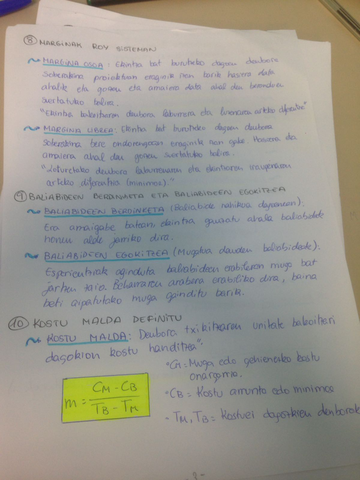 ⑧ MARGINAK ROY SISTEMAN
~ MARGINA OSOA: Ekintza bat burutzeko dagoen denbora
soberakina proiektuan eraginik izan barik hasiera data
ahalik eta goren eta amaiera data ahal den beranduen
suertatuko balira.
"Ekintza bakoitzaren denbora laburrena eta luzeena arteko diferentzia"
~ MARGINA LIBREA: Ekintza bat burutzeko dagoen denbora
soberakina bere ondorengoan eraginik izan gabe. Hasiera da
amaiera ahal dan goren suertatuko balira.
arteko diferentzia (minimoa)."
⑨ BALIABIDEEN BERDINKETA ETA BALIABIDEEN EGOKITZEA
~ BALIABIDEEN BERDINKETA (Baliabide nahikoa dagoenean).
Era amaigabe batean ekintza gauzatu ahala baliabideak
honen alde jarriko dira.
~ BALIABIDEEN EGOKITZEA (Mugatua dauden baliabideak).
Esperientziak aginduta baliabideen erabileran muga bat
jartzen zaio. Beharraren arabera erabiliko dira, baina
beti aipatutako muga gainditu barik.
⑩ KOSTU MALDA DEFINITU
~ KOSTU MALDA: Denbora txikitzearen unitate bakoitzari
dagokion kostu handitzea".
m = CM - CB / TB - TM
"CM: Muga edo gehienezko kostu
onargarria.
"CB = Kostu arrunta edo minimoa
- TM, TB = Kostuei dagozkien denborak